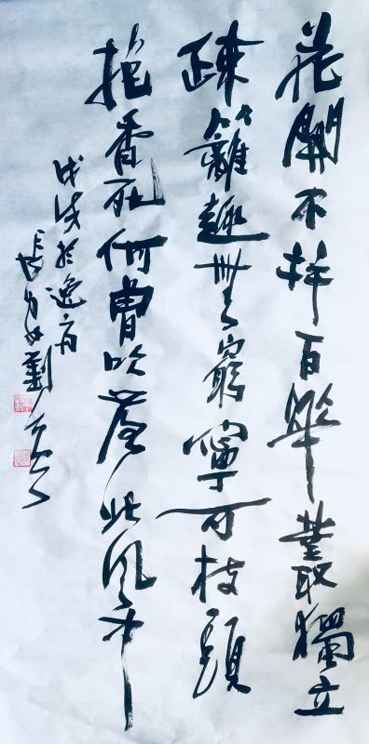 花開不併百華叢獨立
疎籬趣無窮寧可枝頭
抱香死何曾吹落北風中
戊戌於逸
劉